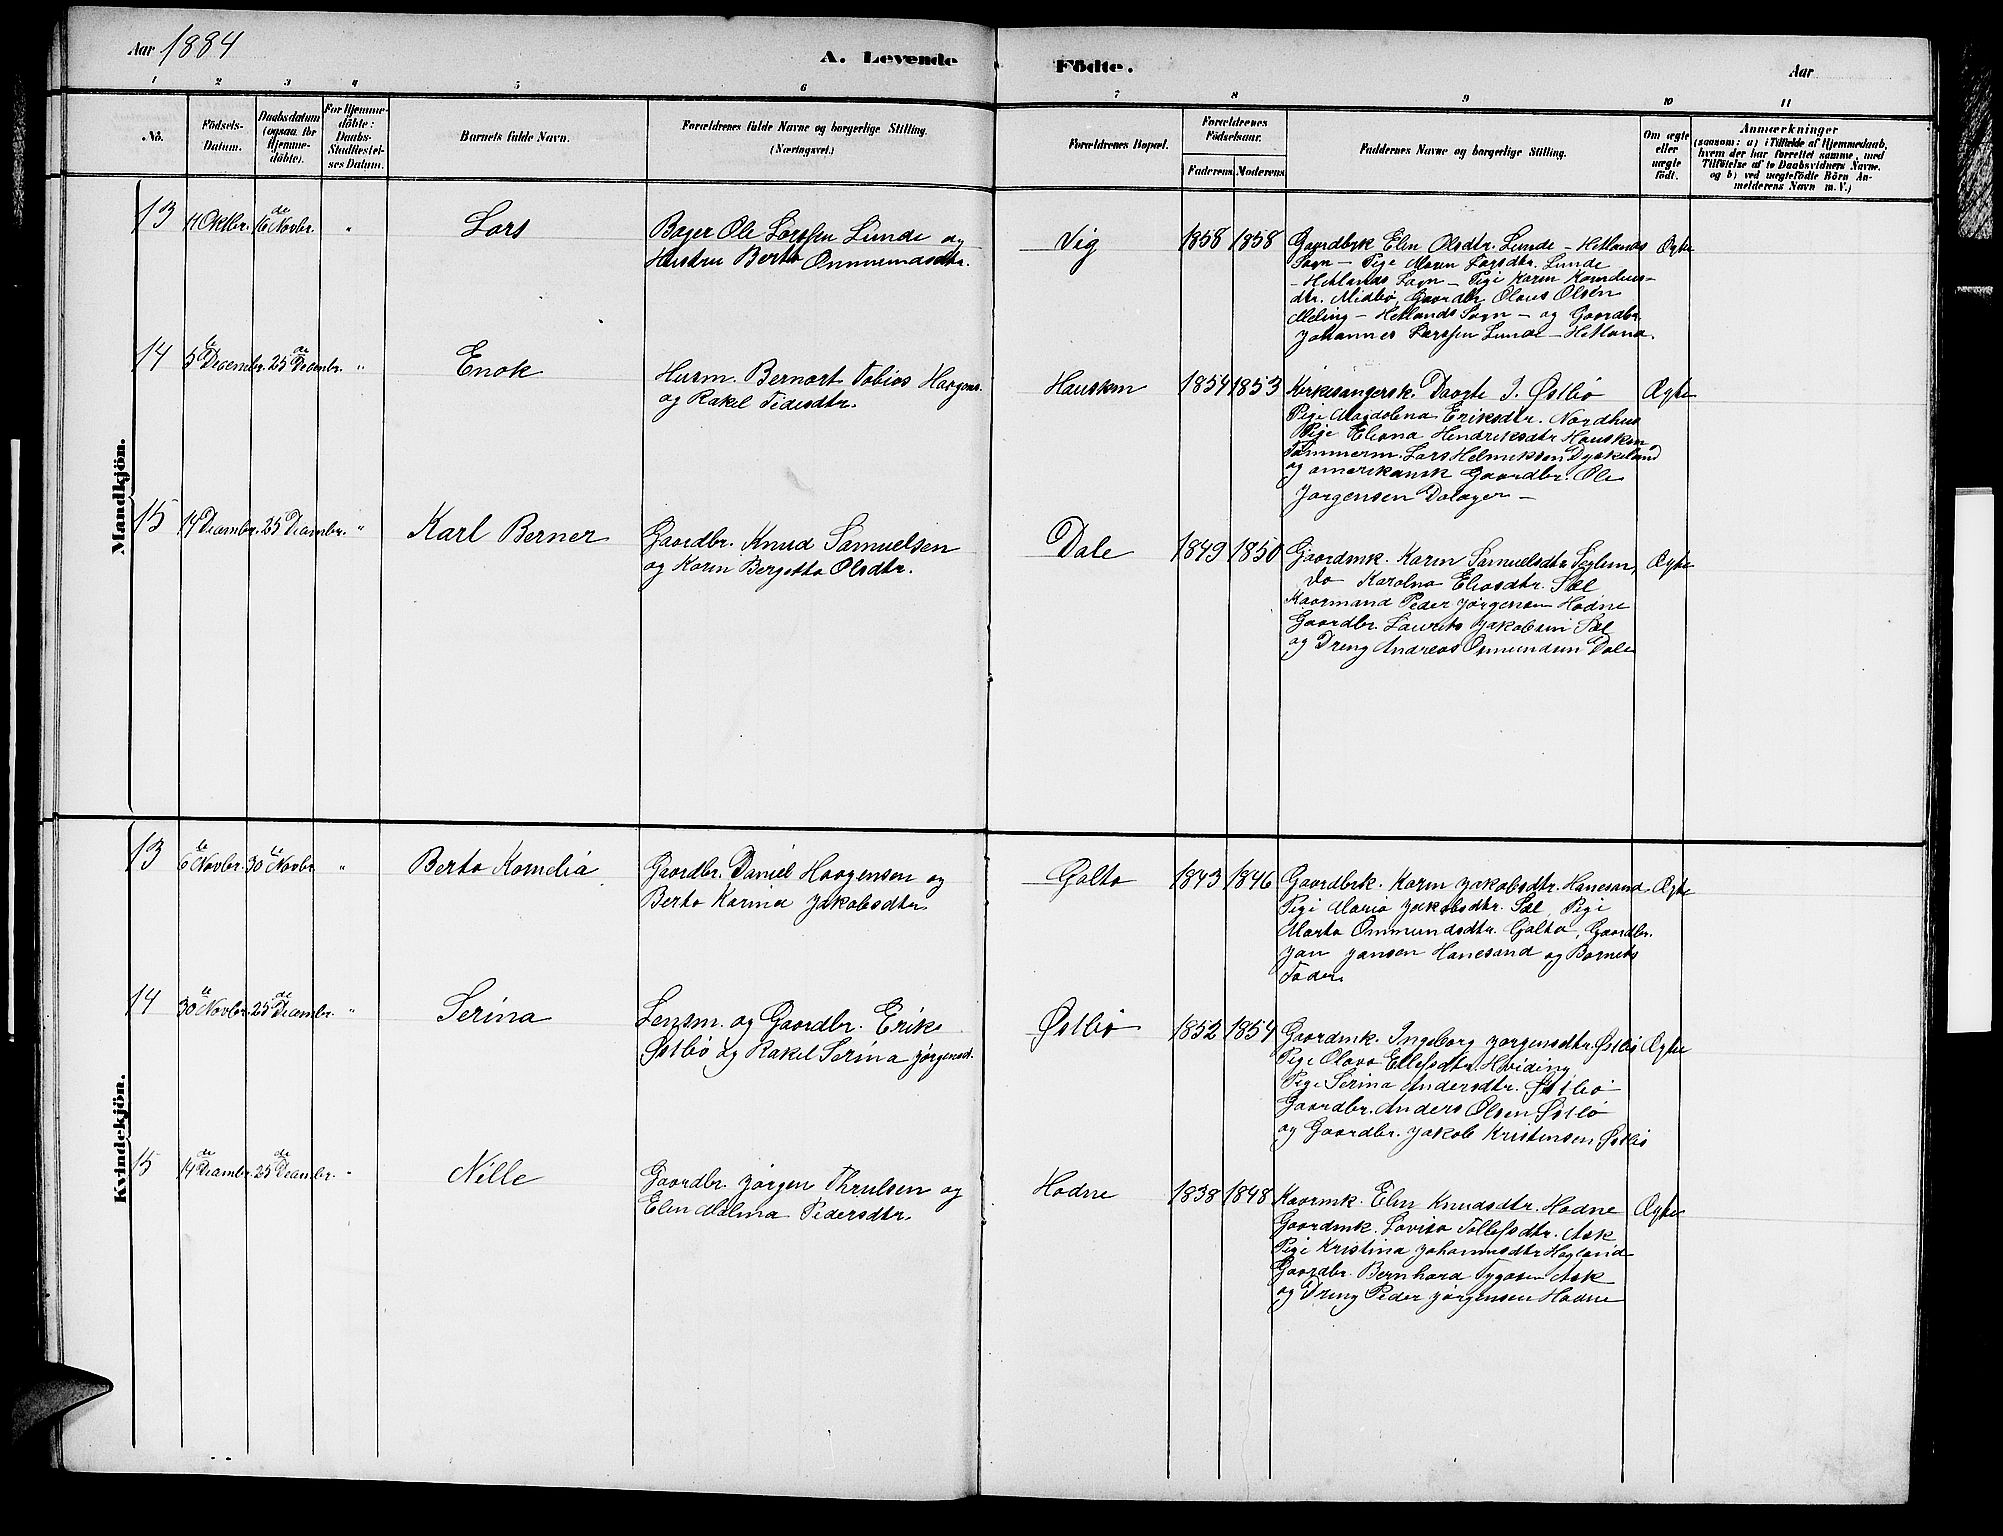 Aar 1884
A. Levende Födte.
Aar
1 2 3 4 5 6 7 8 9 10 11
No.
Födsels-Datum.
Daabsdatum (ogsaa for Hjemmedöbte).
For Hjemmedöbte: Daabs-Stadfæstelses Datum.
Barnets fulde Navn.
Forældrenes fulde Navne og borgerlige Stilling.
(Næringsvei.)
Forældrenes Bopæl.
Forældrenes Födselsaar.
Faderens Moderens
Faddernes Navne og borgerlige Stilling.
Om ægte eller uægte födt.
Anmærkninger
(saasom: a) i Tilfælde af Hjemmedaab,
hvem der har forrettet samme, med
Tilföielse af to Daabsvidners Navne.
og b) ved uægtefödte Börn An-
melderens Navn m. V.)
Mandkjön.
13 4 Oktbr. 16de Novbr. " Lars
Bager Ole Larssen Lunde og
Hustru Berta Ommundsdtr.
Vig 1858 1858
Gaardbrk Elen Olsdtr. Lunde - Hetlands
Sogn - Pige Maren Larsdtr. Lunde
- Hetlands Sogn - Pige Karen Kornelius-
dtr. Midbø, Gaardbr Olaus Olsen
Meling - Hetlands Sogn - og Gaardbr
Johannes Larssen Lunde - Hetland.
Ægte
14 5te Decembr. 25de Decembr. " Enok
Husm. Bernart Tobias Haagens.
og Rakel Pedersdtr.
Hausken 1854 1853
Kirkesangersk. Daagte J. Østbø
Pige Magdalena Eriksdtr. Nordhus
Pige Eliana Hendriksdtr Hausken
Tømmerm. Lars Helmiksen Dyskeland
og amerikansk Gaardbr. Ole
Jørgensen Dalager -
Ægte
15 14 Decembr. 25 Decembr. " Karl Berner
Gaardbr. Knud Samuelsen
og Karen Bergitta Olsdtr.
Dale 1849 1850
Gaardmk. Karen Samuelsdtr Seglem,
do Karolina Eliasdtr. Sæl
Kaarmand Peder Jørgensen Hodne
Gaardbr. Laurits Jakobsen Sæl
og Dreng Andreas Osmundsen Dale
Ægte
Kvindekjön.
13 6te Novbr. 30te Novbr " Berta Kornelia
Gaardbr. Daniel Haagensen og
Berta Karina Jakobsdtr
Galta 1843 1846
Gaardbrk. Karen Jakobsdtr. Hanesand.
Pige Maria Jakobsdtr. Sæl, Pige
Marta Ommundsdtr. Galta, Gaardbr.
Jan Jansen Hanesand og Barnets
Fader
Ægte
14 30te Novbr. 25de Decembr. " Serina
Lensm. og Gaardbr. Erik
Østbø og Rakel Serina Jørgensd.
Østbø 1852 1854
Gaardmk. Ingeborg Jørgensdtr. Østbø
Pige Olava Ellefsdtr. Hviding
Pige Serina Andersdtr. Østbø
Gaardbr. Anders Olsen Østbø
og Gaardbr. Jakob Kristensen Østbø
Ægte
15 14de Decembr. 25de Decembr. " Nille
Gaardbr. Jørgen Thrulsen og
Elen Malena Pedersdtr.
Hodne 1838 1848
Kaarmk. Elen Knudsdtr. Hodne
Gaardmk. Lovisa Tollefsdtr. Ask
Pige Kristina Johannesdtr Hagland
Gaardbr. Bernhard Tygesen Ask
og Dreng Peder Jørgensen Hodne
Ægte